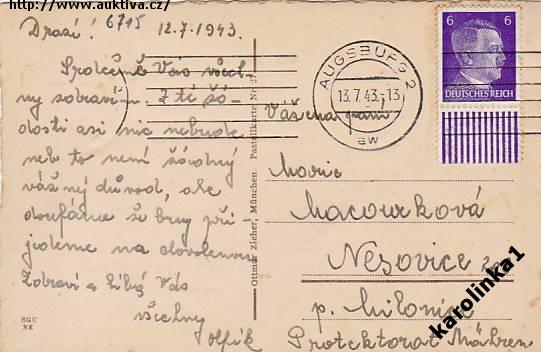 http://www.auktiva.cz/
Drazí! 6715 12.7.1943.
Společně Vás všech-
ny zdraví Z té žá-
dosti asi nic nebude
neb to není žádný
vážný důvod, ale
doufáme že brzy při-
jedeme na dovolenou
Zdraví a líbá Vás
všechny
Olfík
BGU
NK
Ottmar Zieher, München. Pastellkarte Nr.
AUGSBURG 2
13.7.43.-13
aw
6 6
DEUTSCHES REICH
Vážená paní
Marie
Macourková
Nesovice
p. Milonice
Protektorat Mähren
karolinka1